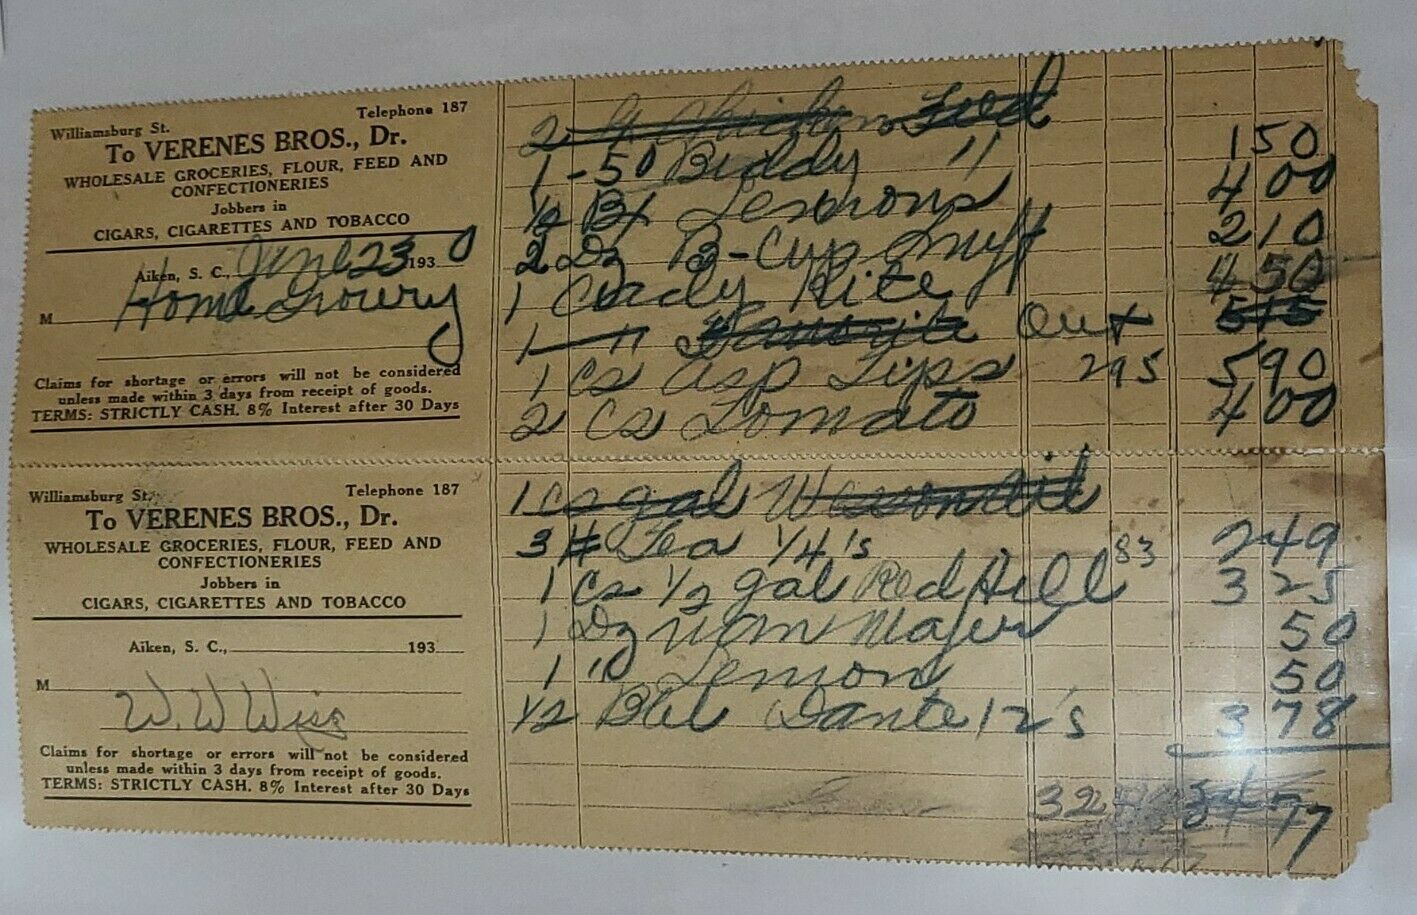 Williamsburg St. Telephone 187
To VERENES BROS., Dr.
WHOLESALE GROCERIES, FLOUR, FEED AND
CONFECTIONERIES
Jobbers in
CIGARS, CIGARETTES AND TOBACCO
Aiken, S. C., June 23 1930
M Home Grocery
Claims for shortage or errors will not be considered
unless made within 3 days from receipt of goods.
TERMS: STRICTLY CASH. 8% Interest after 30 Days
2 Chicken Feed
1-50 Biddy " 150
1/2 Bx Lemons 400
2 Dz B-Cup Snuff 210
1 Cs Ady Rite 450
1 — " Favorite Out 515
1 Cs Asp Tips 295 590
2 Cs Tomato 400
Williamsburg St. Telephone 187
To VERENES BROS., Dr.
WHOLESALE GROCERIES, FLOUR, FEED AND
CONFECTIONERIES
Jobbers in
CIGARS, CIGARETTES AND TOBACCO
Aiken, S. C., 193
M
W. W Wise
Claims for shortage or errors will not be considered
unless made within 3 days from receipt of goods.
TERMS: STRICTLY CASH. 8% Interest after 30 Days
1 Cs gal Wesson Oil
3 # Tea 1/4's 83 249
1 Cs 1/2 gal Red Hill 325
1 Dz 50
1 " Lemon 50
1/2 Bbl Dante 12's 378
32